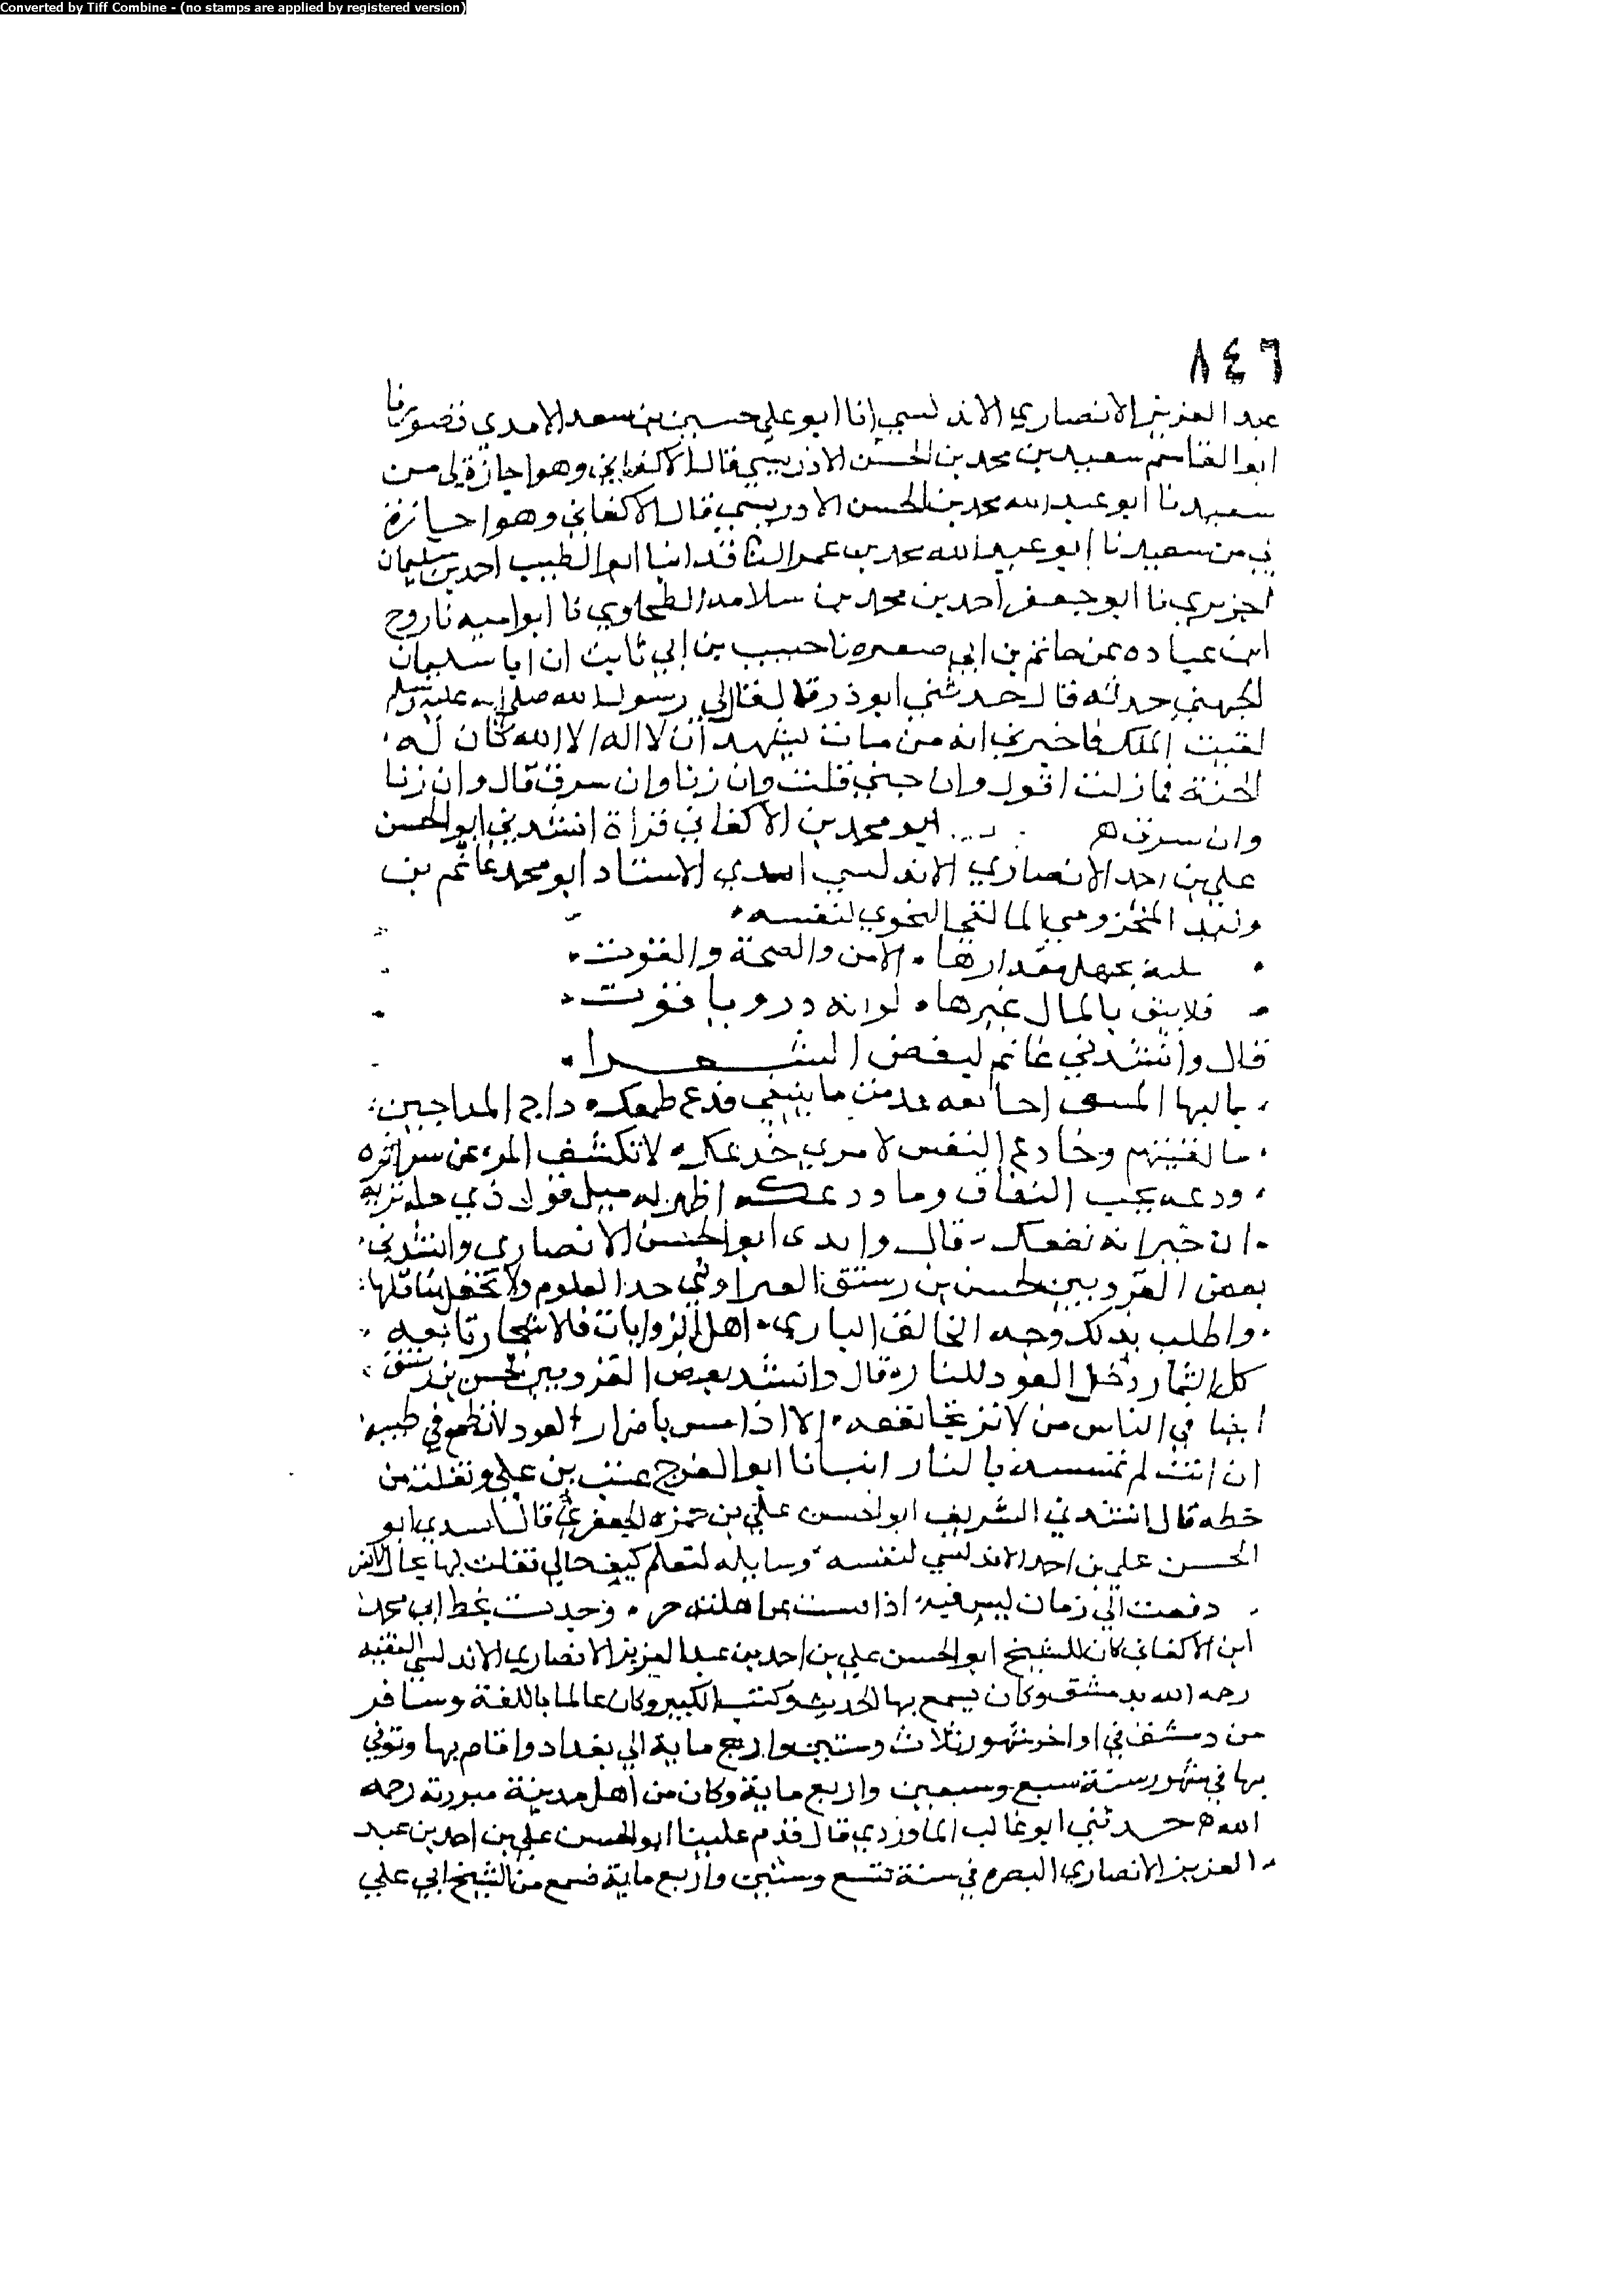 Converted by Tiff Combine - (no stamps are applied by registered version)
٨٤٦
عبد العزيز الانصاري الاندلسي انا ابو علي حسين بن سعد الامدي نا
ابو القاسم سعيد بن محمد بن الحسن الادريسي قال الاكفاني وهو اجازة لي من
سعيد نا ابو عبد الله محمد بن الحسن الادريسي قال الاكفاني وهو اجازة
لي من سعيد نا ابو عبد الله محمد بن عمر الناقد انبا ابو الطيب احمد بن سليمان
الجزيري نا ابو جعفر احمد بن محمد بن سلامه الطحاوي نا ابو اميه نا روح
ابن عباده عن حاتم بن ابي صغيره نا حبيب بن ابي ثابت ان ابا سليمان
الجهني حدثه قال حدثني ابو ذر قال قال لي رسول الله صلى الله عليه وسلم
لقيت الملك فاخبرني انه من مات يشهد ان لا اله الا الله كان له
الجنة فما زلت اقول وان حتي قلت وان زنا وان سرق قال وان زنا
وان سرق ه ابو محمد بن الاكفاني قراة انشدني ابو الحسن
علي بن احمد الانصاري الاندلسي الاستاد ابو محمد غانم بن
وليد المخزومي المالقي النحوي لنفسه
يجهل مقدارها الامن والصحة والقوت
فلا يثق بالمال غيرها لو انه در وياقوت
قال وانشدني غانم لبعض الشعرا
ما ينبغي فدع طمعك داج المداجين
ما لقيتهم وخادع النفس لامري خدعك لا تكشف المرء عن سرائره
ودعه يجب النفاق وما ودعك اظهر له مثل قول ذي
ان خيرا نه نفعك قال ابو الحسن الانصاري وانشدني
بعض القرويين لحسن بن رشيق العلوم ولا تحفل
واطلب بذلك وجه الخالق الباري اهل الروايات فالاشجار نابعه
كل الثمار دخل العود للنار قال وانشد بعض القرويين لحسن بن رشيق
ايضا في الناس من لا ترتجا نفعه الا اذا مس باضرار العود لا تطمع في طيبه
ان انت لم تمسسه بالنار انبانا ابو الفرج غيث بن علي ونقلته من
خطه قال انشدني الشريف ابو الحسن علي بن حمزه الجعفري قال ابو
الحسن علي بن احمد الاندلسي لنفسه وسايله لتعلم كيف حالي فقلت لها بحال
دفعت الي زمان ليس فيه اذا حر وجدت بخط ابي محمد
ابن الاكفاني كان للشيخ ابو الحسن علي بن احمد بن عبد العزيز الانصاري الاندلسي الفقيه
رحمه الله بدمشق وكان يسمع بها الحديث وكتب الكبير وكان عالما باللغة وسافر
من دمشق في اواخر شهور ثلاث وستين واربع ماية الي بغداد واقام بها وتوفي
بها في شهور سنة سبع وسبعين واربع ماية وكان من اهل مدينة ميورقة رحمه
الله ه حدثني ابو غالب الماوردي قال قدم علينا ابو الحسن علي بن احمد بن عبد
العزيز الانصاري البصره في سنة تسع وستين واربع ماية فسمع من الشيخ ابي علي